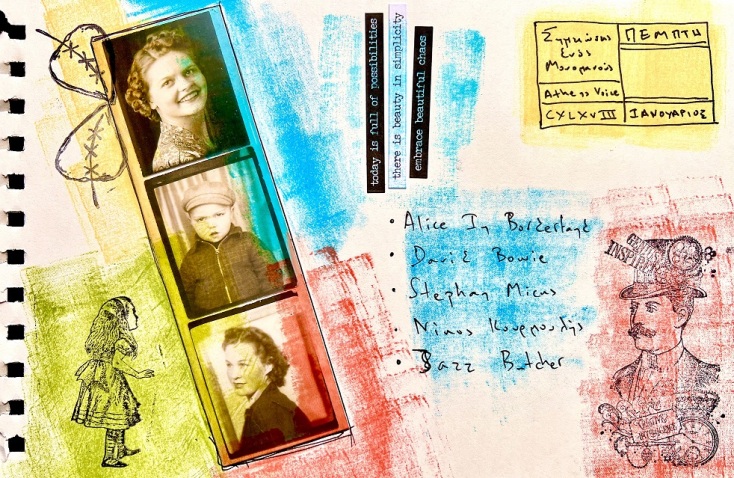 today is full of possibilities
there is beauty in simplicity
embrace beautiful chaos
Σημειώσεις
Ενός
Μοναχικού
Athens Voice
CXLXVIII
ΠΕΜΠΤΗ
ΙΑΝΟΥΑΡΙΟΣ
• Alice In Borderland
• David Bowie
• Stephan Micus
• Νίκος
• Jazz Butcher